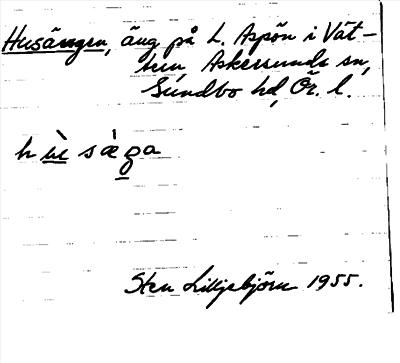 Husängen, äng på L. Aspön i Vät-
tern, Askersunds sn,
Sundbo hd, Ör. l.
h ùe s à g a
Sten Lilljebjörn 1955.